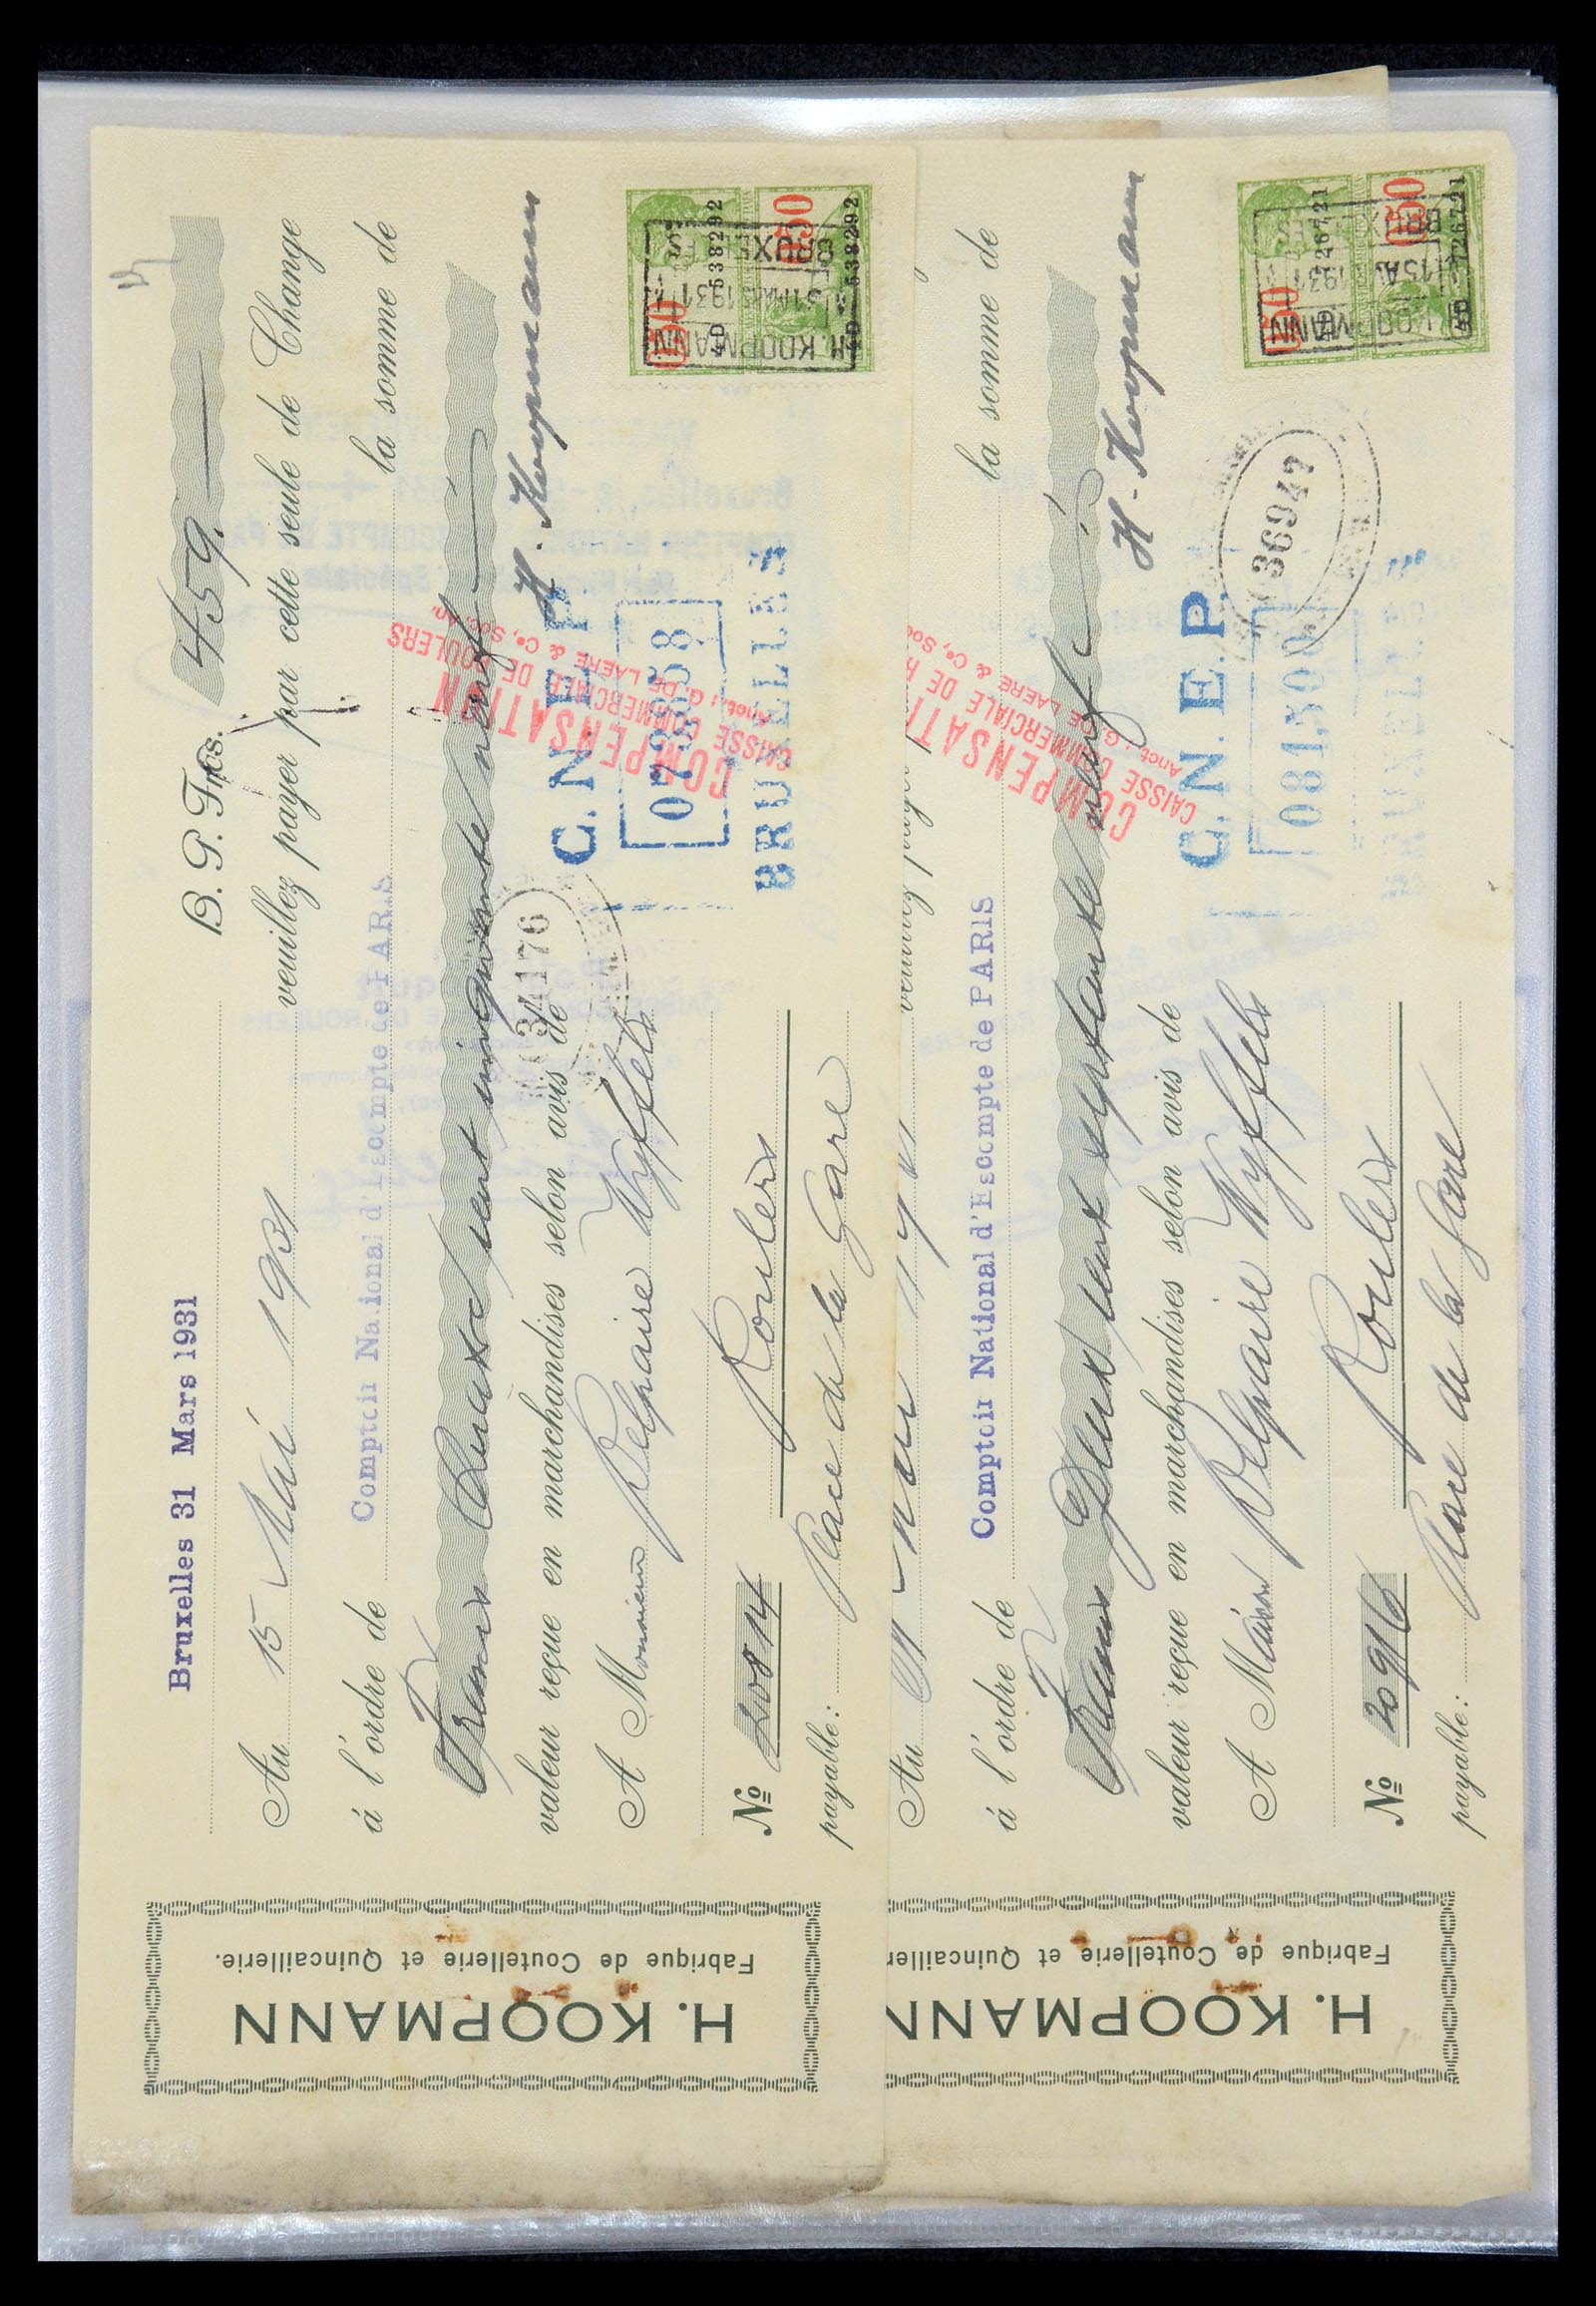 Bruxelles 31 Mars 1931
B. P. Frcs. 459.
Au 15 Mai 1931 veuillez payer par cette seule de Change
à l'ordre de Comptoir National d'Escompte de PARIS la somme de
Francs Quatre cent cinquante neuf
valeur reçue en marchandises selon avis de
H. Koopmann
A Monsieur Delpaire Wyffels
No 20814 Roulers
payable: Place de la Gare
H. KOOPMANN
Fabrique de Coutellerie et Quincaillerie.
COMPENSATION
CAISSE COMMERCIALE DE ROULERS
Anct.: G. DE LAERE & Co, Soc. An.
C. N. E. P.
073658
BRUXELLES
34176
0.50
0.50
H. KOOPMANN
31 MARS 1931
BRUXELLES
D 538292
D 538292
Au
à l'ordre de Comptoir National d'Escompte de PARIS la somme de
Francs Deux cent septante neuf
valeur reçue en marchandises selon avis de
H. Koopmann
A Maison Delpaire Wyffels
No 20916 Roulers
payable: Place de la Gare
H. KOOPMANN
Fabrique de Coutellerie et Quincailler
COMPENSATI
CAISSE COMMERCIALE DE R
Anct.: G. DE LAERE & Co, Soc
C. N. E. P.
BRUXELLES
36947
0.50
0.50
H. KOOPMANN
1931
BRUXELLES